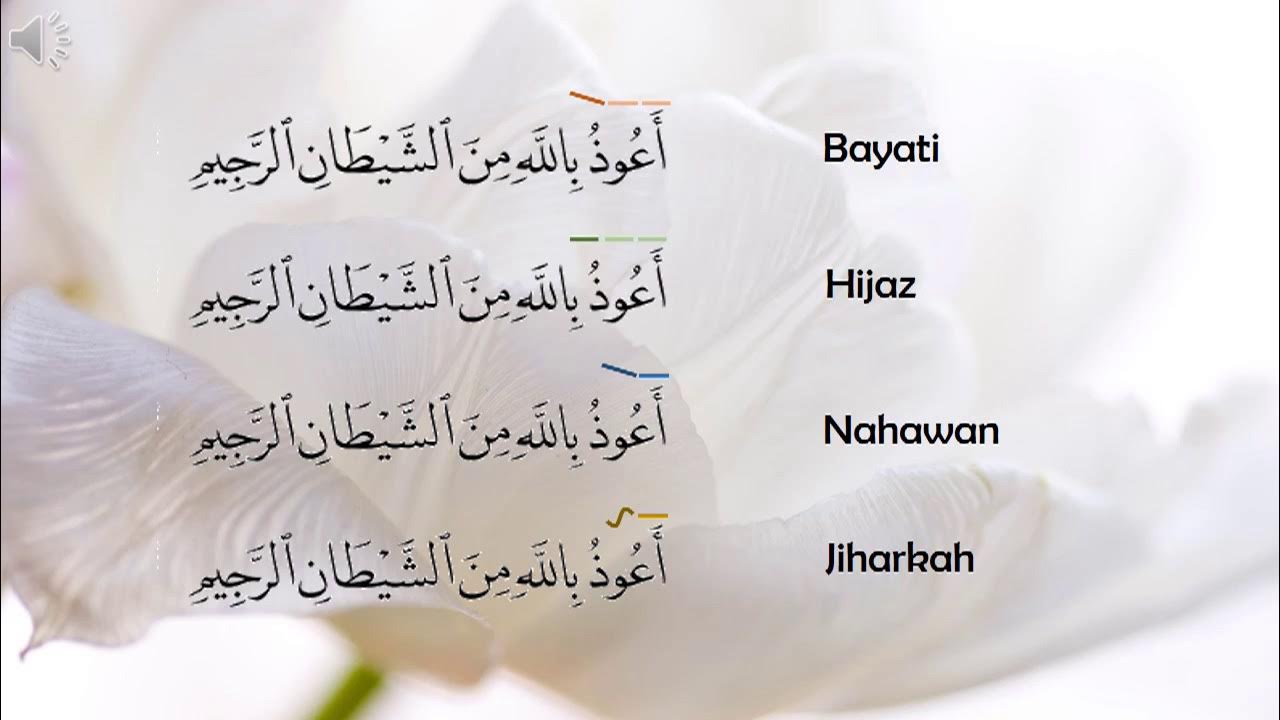 أَعُوذُ بِاللَّهِ مِنَ ٱلشَّيْطَانِ ٱلرَّجِيمِ Bayati
أَعُوذُ بِاللَّهِ مِنَ ٱلشَّيْطَانِ ٱلرَّجِيمِ Hijaz
أَعُوذُ بِاللَّهِ مِنَ ٱلشَّيْطَانِ ٱلرَّجِيمِ Nahawan
أَعُوذُ بِاللَّهِ مِنَ ٱلشَّيْطَانِ ٱلرَّجِيمِ Jiharkah